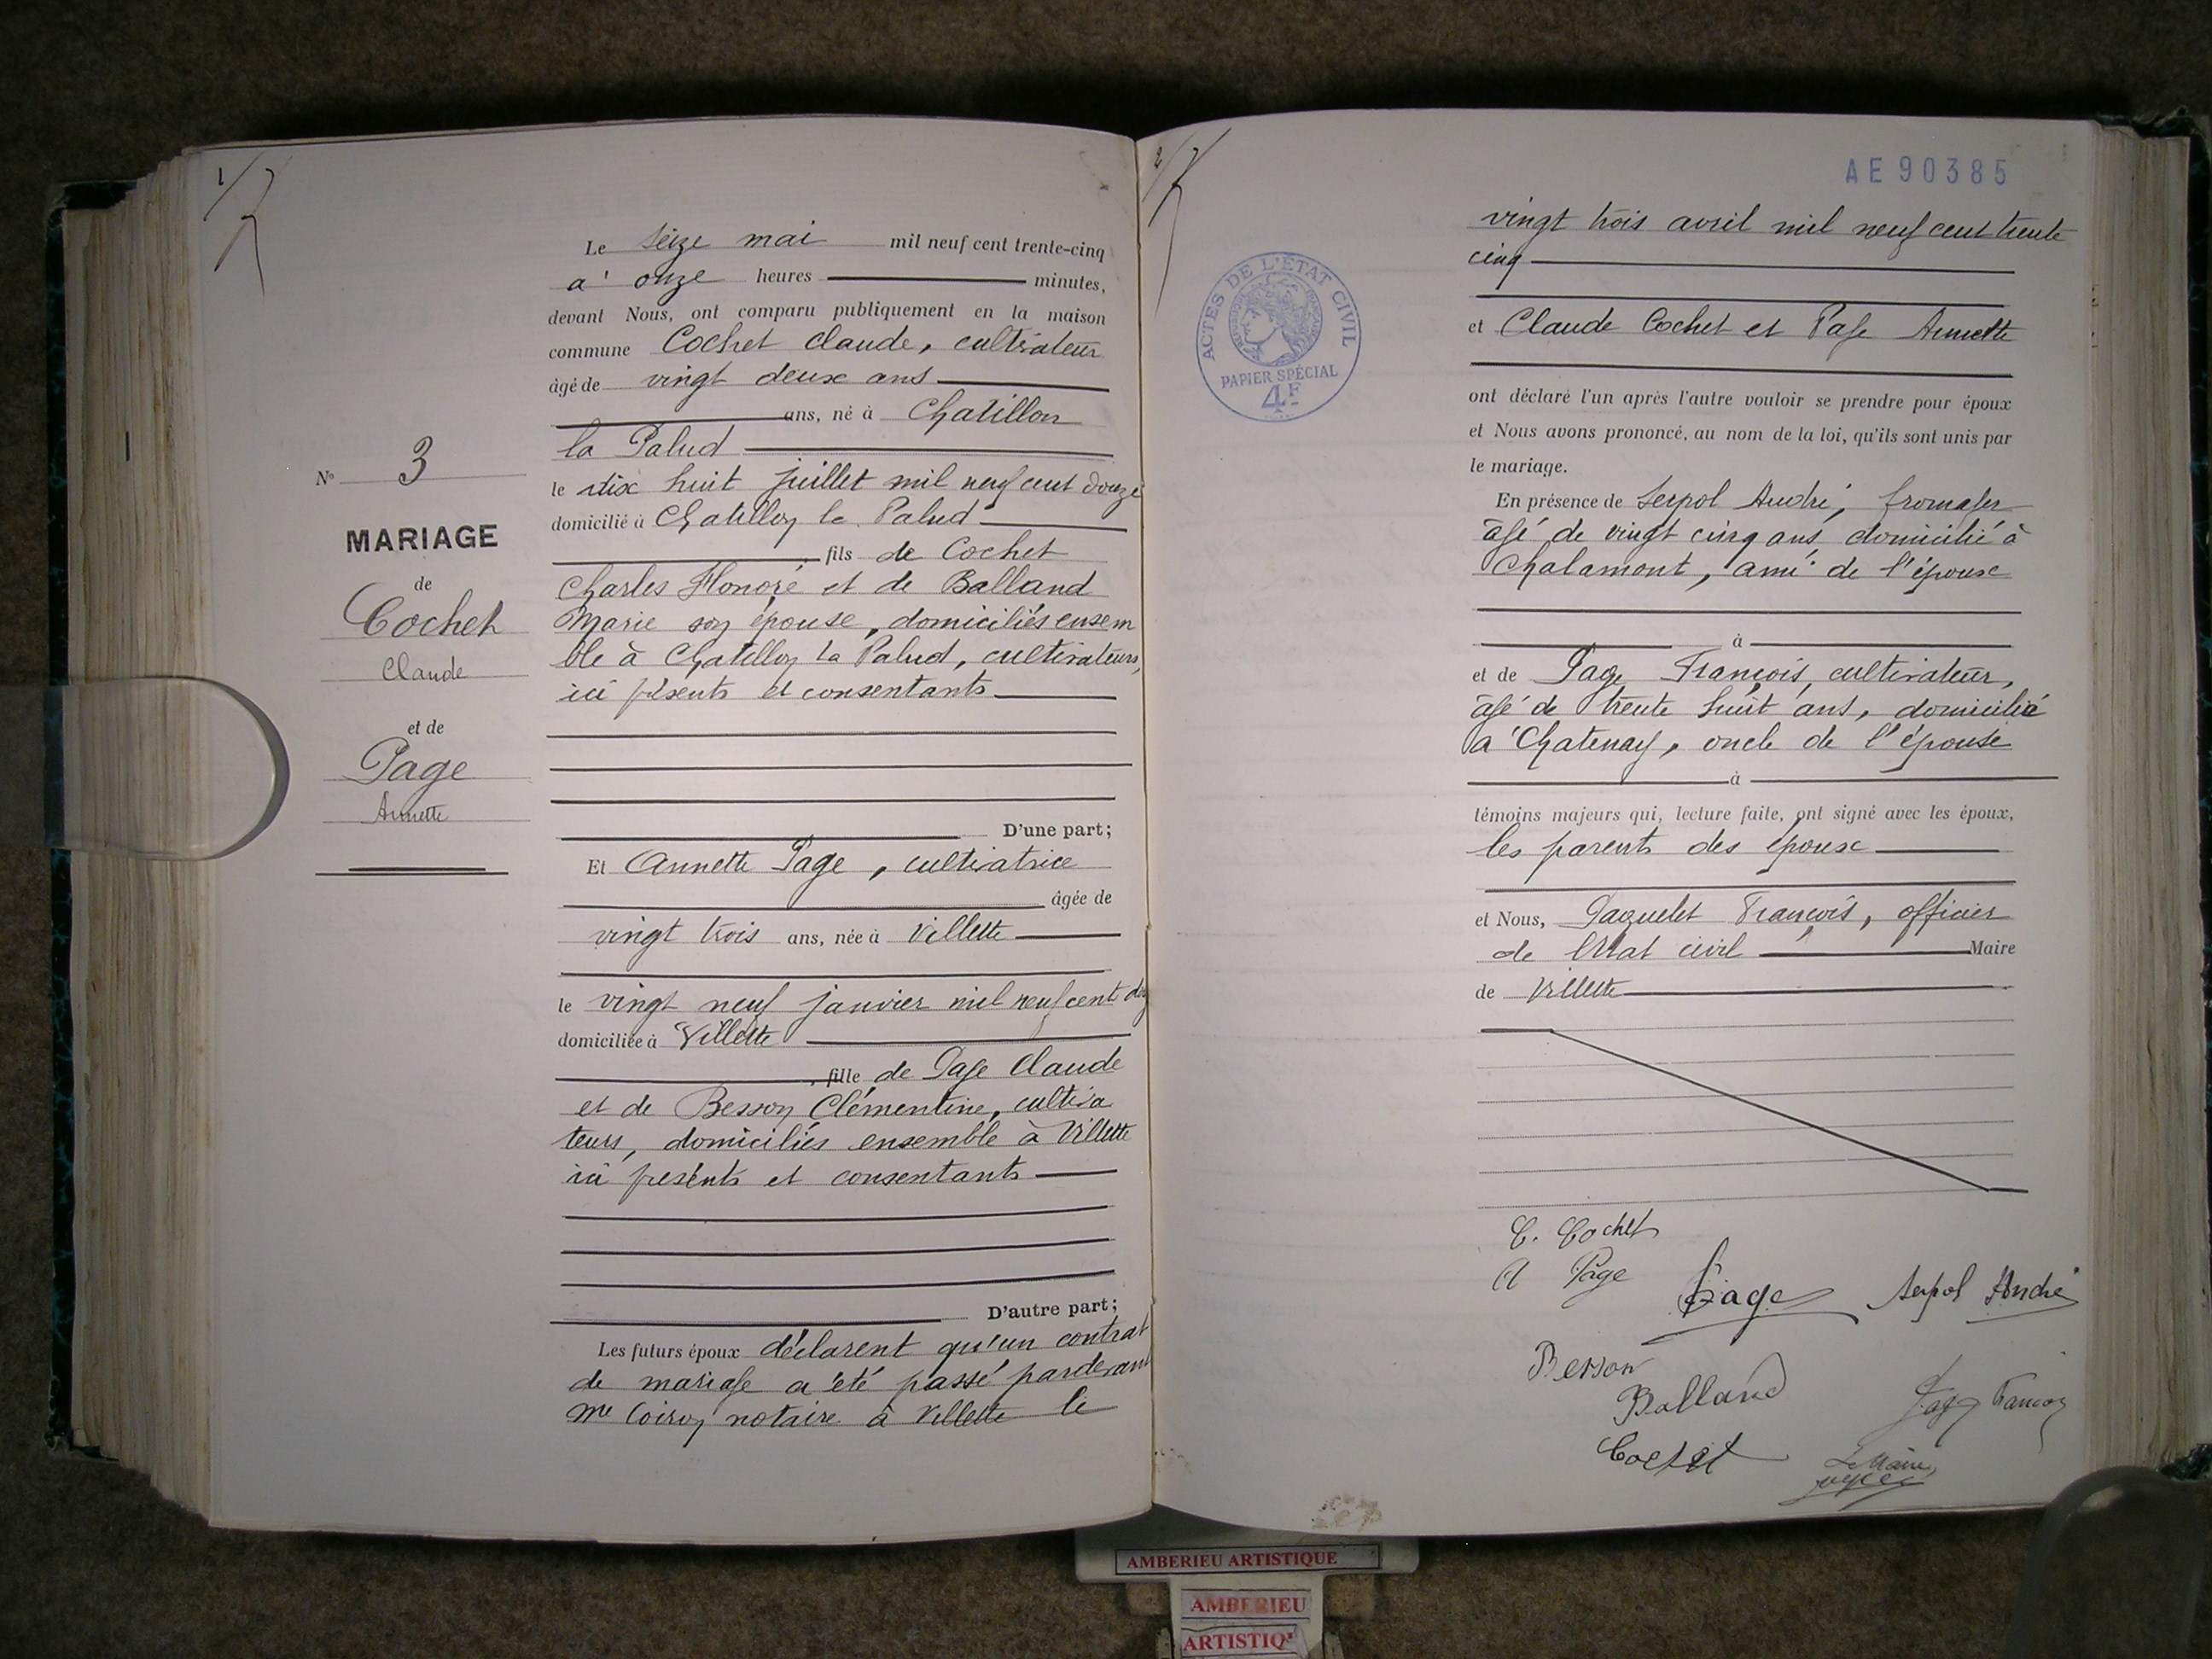 1/
Le Seize mai mil neuf cent trente-cinq
à onze heures minutes,
devant Nous, ont comparu publiquement en la maison
commune Cochet Claude, cultivateur
âgé de vingt deux ans
ans, né à Chatillon
la Palud
le dix huit juillet mil neuf cent douze
domicilié à Chatillon la Palud
fils de Cochet
Charles Honoré et de Balland
Marie son épouse, domiciliés ensem
ble à Chatillon la Palud, cultivateurs,
ici présents et consentants
D'une part;
Et Annette Page, cultivatrice
âgée de
vingt trois ans, née à Villette
le vingt neuf janvier mil neuf cent
domiciliée à Villette
fille de Page Claude
et de Besson Clémentine, cultiva
teurs, domiciliés ensemble à Villette
ici présents et consentants
D'autre part;
Les futurs époux déclarent qu'un contrat
de mariage a été passé pardevant
Me notaire à Villette le
No 3
MARIAGE
de
Cochet
Claude
et de
Page
Annette
2/
AE 90385
ACTES DE L'ÉTAT CIVIL
PAPIER SPÉCIAL
4F
vingt trois avril mil neuf cent trente
cinq
et Claude Cochet et Page Annette
ont déclaré l'un après l'autre vouloir se prendre pour époux
et Nous avons prononcé, au nom de la loi, qu'ils sont unis par
le mariage.
En présence de Serpol André, fromager
âgé de vingt cinq ans domicilié à
Chalamont, ami de l'épouse
à
et de Page François, cultivateur,
âgé de trente huit ans, domicilié
à Chatenay, oncle de l'épouse
à
témoins majeurs qui, lecture faite, ont signé avec les époux,
les parents des épouse
et Nous, Paquelet François, officier
de l'état civil Maire
de Villette
C. Cochet
A Page
Page
Serpol André
Besson
Balland
Page François
Cochet
Le Maire,
AMBERIEU ARTISTIQUE
AMBERIEU
ARTISTIQ